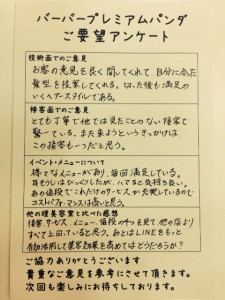 バーバープレミアムパンダ
ご要望アンケート
技術面でのご意見
お客の意見を良く聞してくれて、自分に合った
髪型を提案してくれる。切った後も満足の
いくヘアースタイルである。
接客面でのご意見
とても丁寧で他では見たことのない接客で
驚いている。また来ようというきっかけは
この接客も一つだと思う。
イベント・メニューについて
様々なメニューがあり、毎回満足している。
耳もうしはびっくりしたが、ハマると気持ち良い。
あの値段でこれだけのサービスが充実しているので
コストパフォーマンスは高いと思う。
他の理美容室と比べた感想
接客、サービス、メニュー、値段のやすを見て他の店より
すべて上回っていると思う。あとはLINEをもっと
有効活用して集客効果を高めてはどうだろうか?
ご協力ありがとうございます
貴重なご意見を参考にさせて頂きます。
次回も楽しみにお待ちしております。